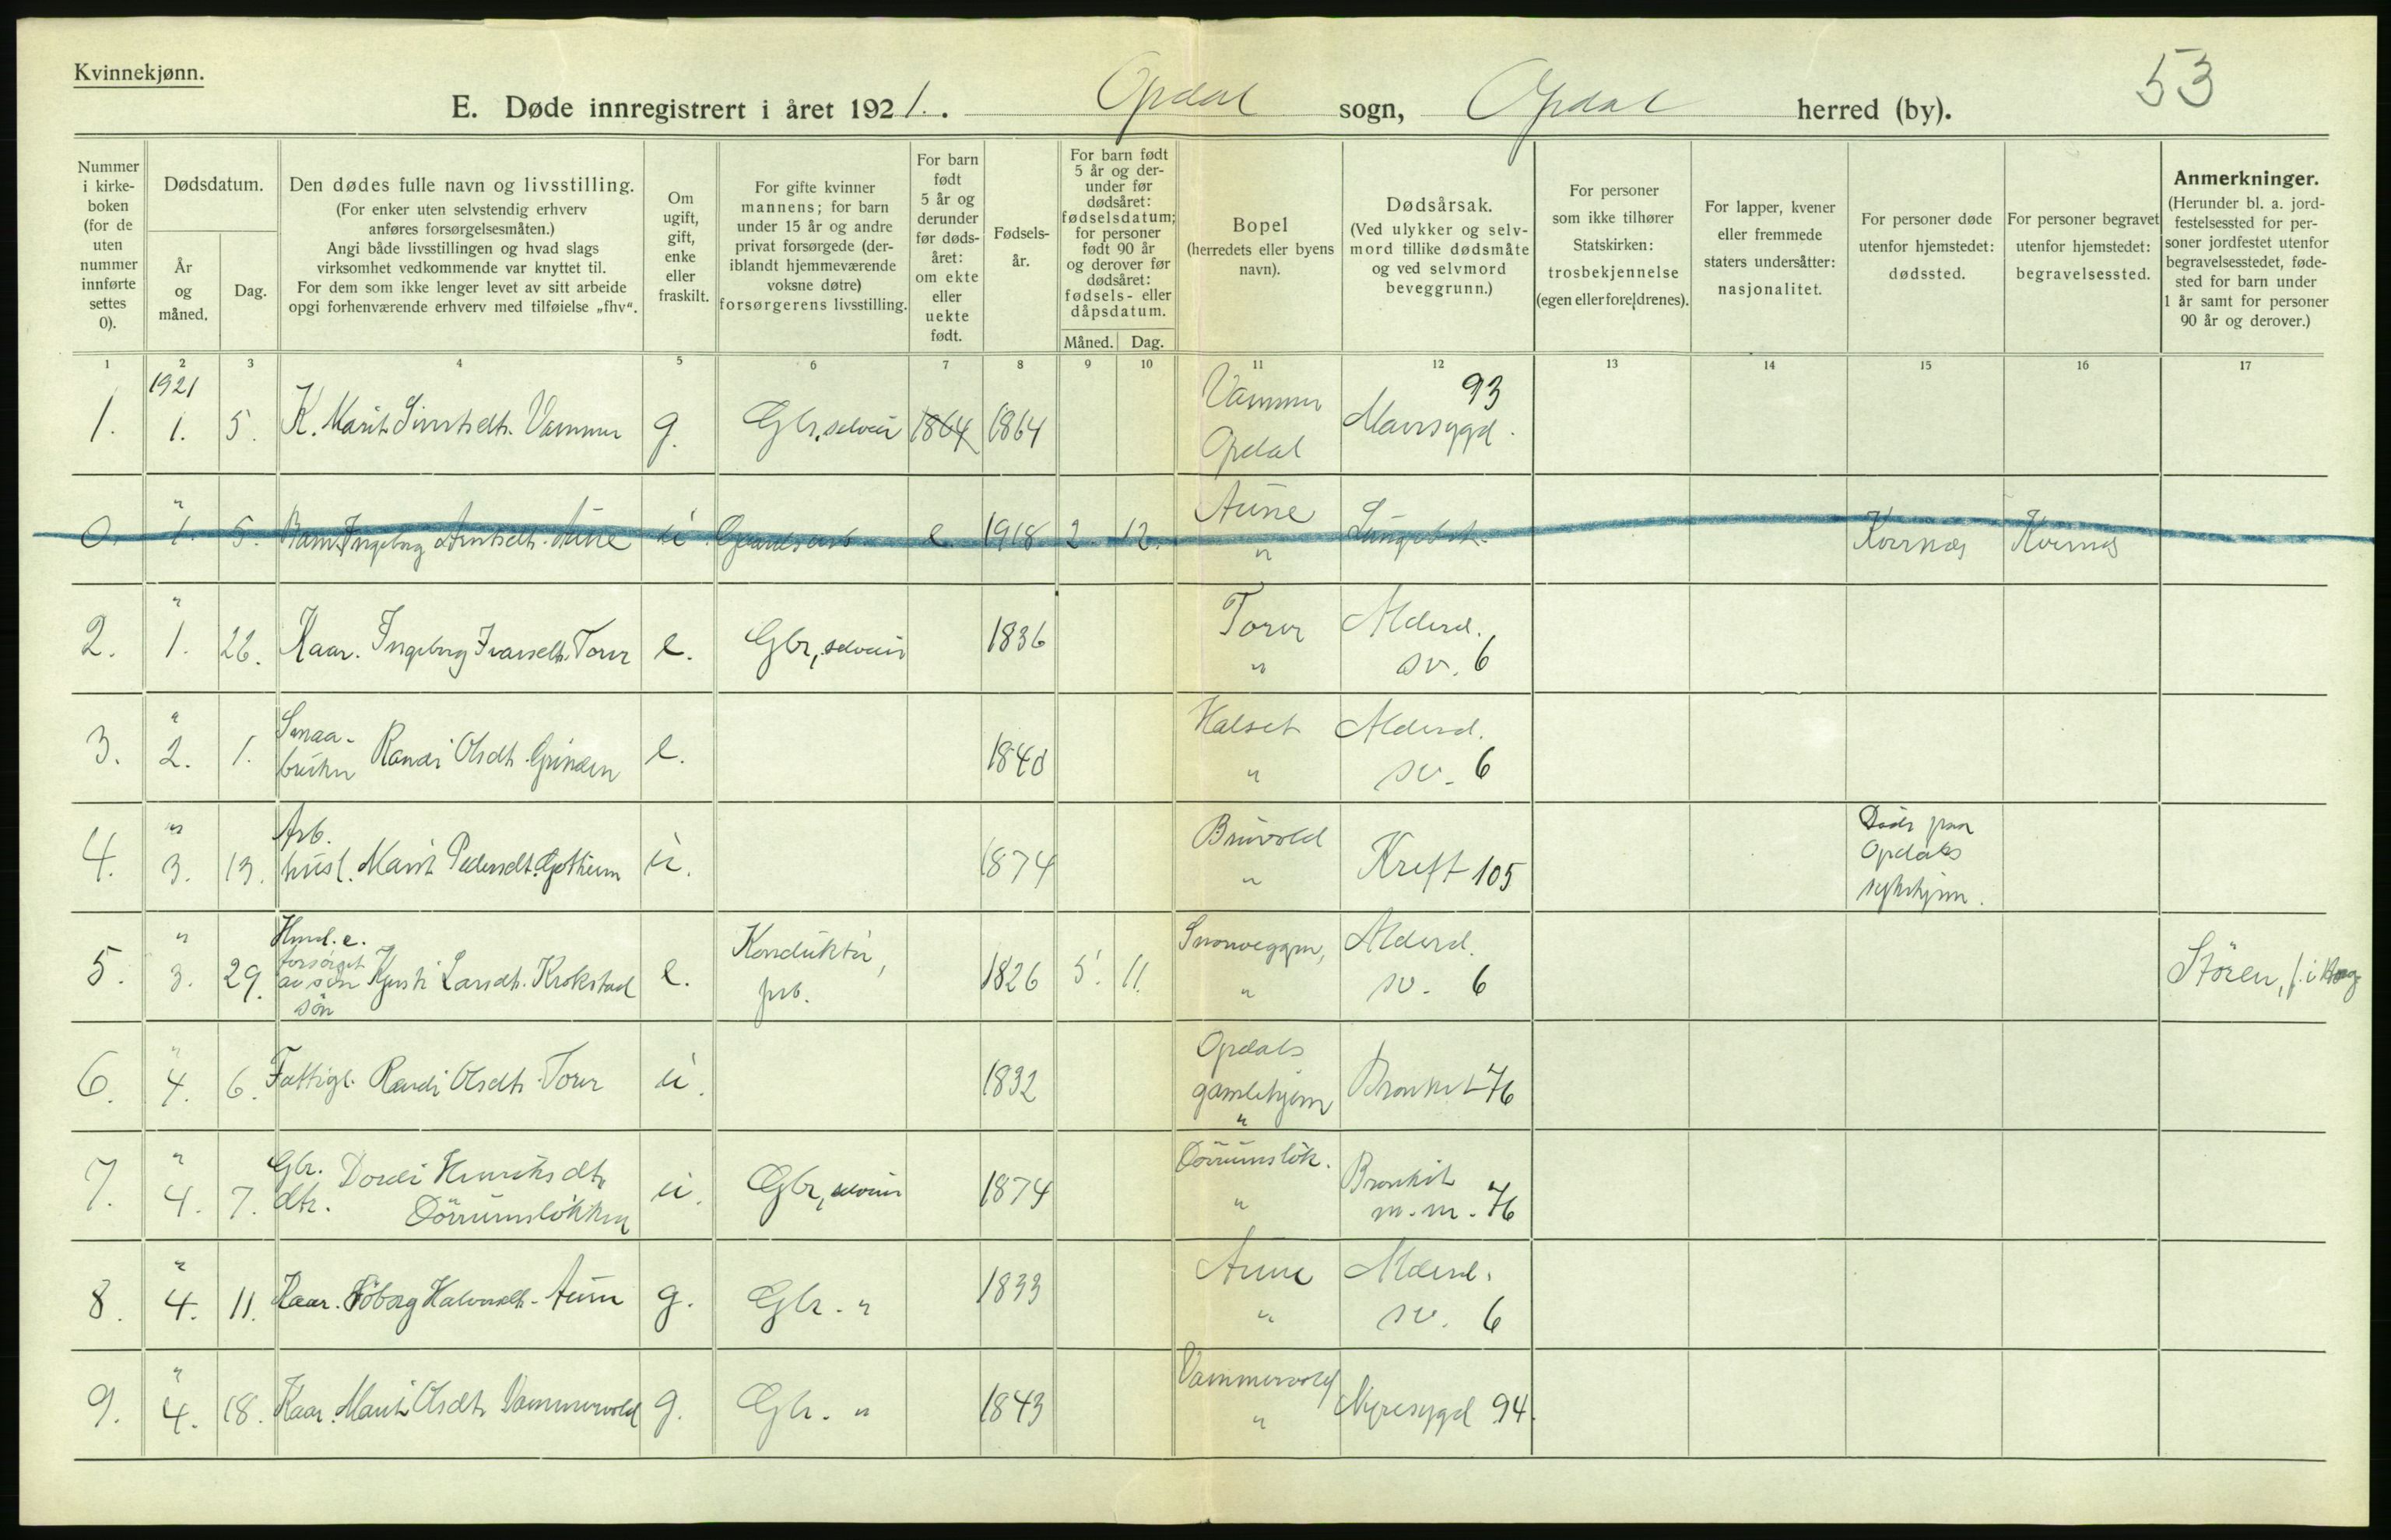 Kvinnekjønn.
53
E. Døde innregistrert i året 1921. Opdal sogn, Opdal herred (by).
Nummer i kirkeboken (for de uten nummer innførte settes 0).
Dødsdatum.
År og måned.
Dag.
Den dødes fulle navn og livsstilling.
(For enker uten selvstendig erhverv anføres forsørgelsesmåten.)
Angi både livsstillingen og hvad slags virksomhet vedkommende var knyttet til.
For dem som ikke lenger levet av sitt arbeide opgi forhenværende erhverv med tilføielse „fhv“.
Om ugift, gift, enke eller fraskilt.
For gifte kvinner mannens; for barn under 15 år og andre privat forsørgede (deriblandt hjemmeværende voksne døtre) forsørgerens livsstilling.
For barn født 5 år og derunder før dødsåret: om ekte eller uekte født.
Fødselsår.
For barn født 5 år og derunder før dødsåret: fødselsdatum; for personer født 90 år og derover før dødsåret: fødsels- eller dåpsdatum.
Måned. Dag.
Bopel (herredets eller byens navn).
Dødsårsak.
(Ved ulykker og selvmord tillike dødsmåte og ved selvmord beveggrunn.)
For personer som ikke tilhører Statskirken: trosbekjennelse (egen eller foreldrenes).
For lapper, kvener eller fremmede staters undersåtter: nasjonalitet.
For personer døde utenfor hjemstedet: dødssted.
For personer begravet utenfor hjemstedet: begravelsessted.
Anmerkninger.
(Herunder bl. a. jordfestelsessted for personer jordfestet utenfor begravelsesstedet, fødested for barn under 1 år samt for personer 90 år og derover.)
1 2 3 4 5 6 7 8 9 10 11 12 13 14 15 16 17
1. 1921 1. 5. K. Marit Vammer g. Gbr. selveier 1864 1864 Vammer Opdal Mavesygd. 93
0. " 1. 5. Barn Ingeborg Aune u. e. 1918 2. 12. Aune " Kvernes Kvernes
2. " 1. 26. Kaar. Ingeborg Ivarsdtr. Torver e. Gbr, selveier 1836 Torver " Alderd. sv. 6
3. " 2. 1. Smaabruker Randi Olsdtr. Grinden e. 1840 Halset " Alderd. sv. 6
4. " 3. 13. Arb. husl. Marit Pedersdt. u. 1874 Bruvold " Kreft 105 Døde paa Opdals sykehjem.
5. " 3. 29. e. forsørget av søn søn Larsdt. Krokstad e. Konduktør, 1826 5. 11. " Alderd. sv. 6 Støren,
6. " 4. 6. Fattigl. Randi Olsdtr. Torver u. 1832 Opdals gamlehjem " Bronkit 76
7. " 4. 7. Gbr. dtr. Dordi Henriksdtr. Dørrumsløkken u. Gbr, selveier 1874 Dørrumsløk. " Bronkit m. m. 76
8. " 4. 11. Kaar. Aune g. Gbr. " 1833 Aune " Alderd. sv. 6
9. " 4. 18. Kaar. Marit Olsdtr. Vammervold g. Gbr. " 1843 Vammervold " Nyresygd 94.